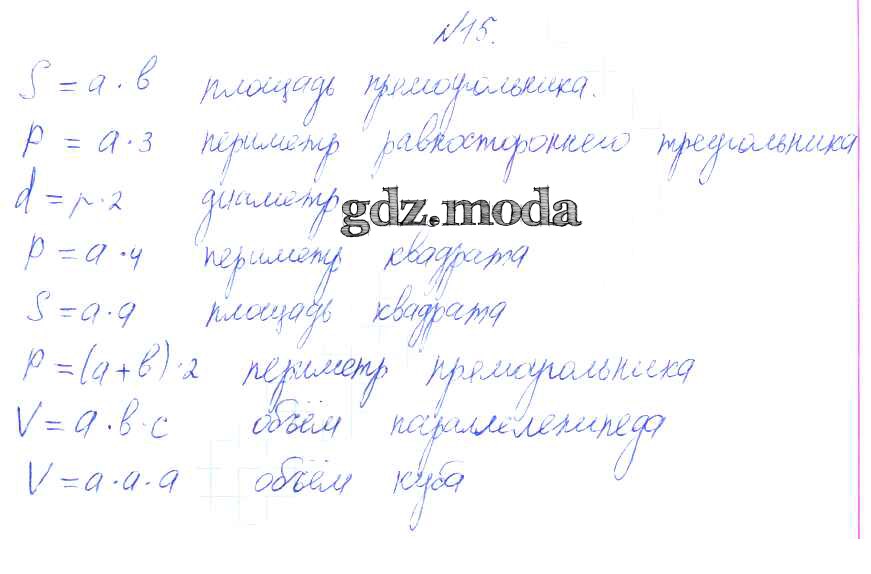 №15.
S = a · b площадь прямоугольника.
P = a · 3 периметр равностороннего треугольника
d = r · 2 диаметр
gdz.moda
P = a · 4 периметр квадрата
S = a · a площадь квадрата
P = (a + b) · 2 периметр прямоугольника
V = a · b · c объём параллелепипеда
V = a · a · a объём куба